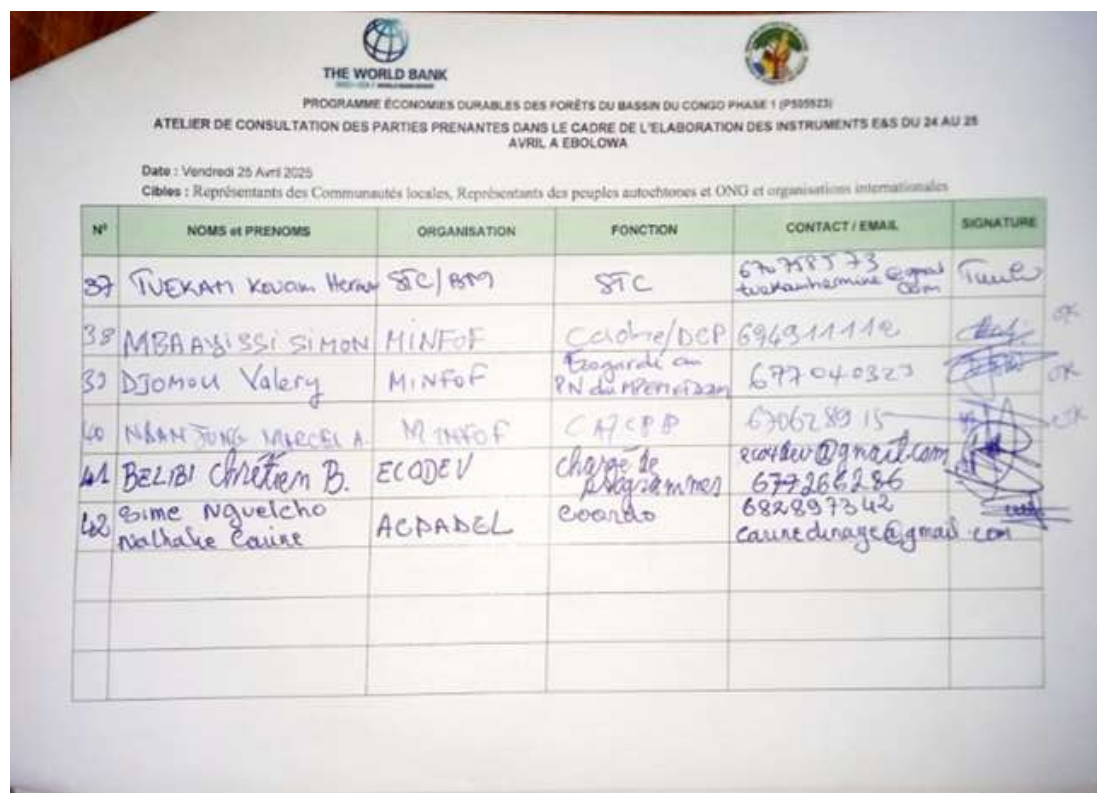 THE WORLD BANK
PROGRAMME ÉCONOMIES DURABLES DES FORÊTS DU BASSIN DU CONGO PHASE 1 (P505523)
ATELIER DE CONSULTATION DES PARTIES PRENANTES DANS LE CADRE DE L'ELABORATION DES INSTRUMENTS E&S DU 24 AU 25
AVRIL A EBOLOWA
Date : Vendredi 25 Avril 2025
Cibles : Représentants des Communautés locales, Représentants des peuples autochtones et ONG et organisations internationales
N° NOMS et PRENOMS ORGANISATION FONCTION CONTACT / EMAIL SIGNATURE
37 TUEKAM Kouam STC/BM STC
38 MBA AYISSI SIMON MINFOF Cadre/DCP 694911112 OK
39 DJOMOU Valery MINFOF 677040323 OK
PN du
40 MINFOF 670628915 OK
41 BELIBI Chrétien B. ECODEV chargé de programmes @gmail.com
677266286
42 Sime Nguelcho ACPADEL Coordo 682897342
Nathalie Carine @gmail.com